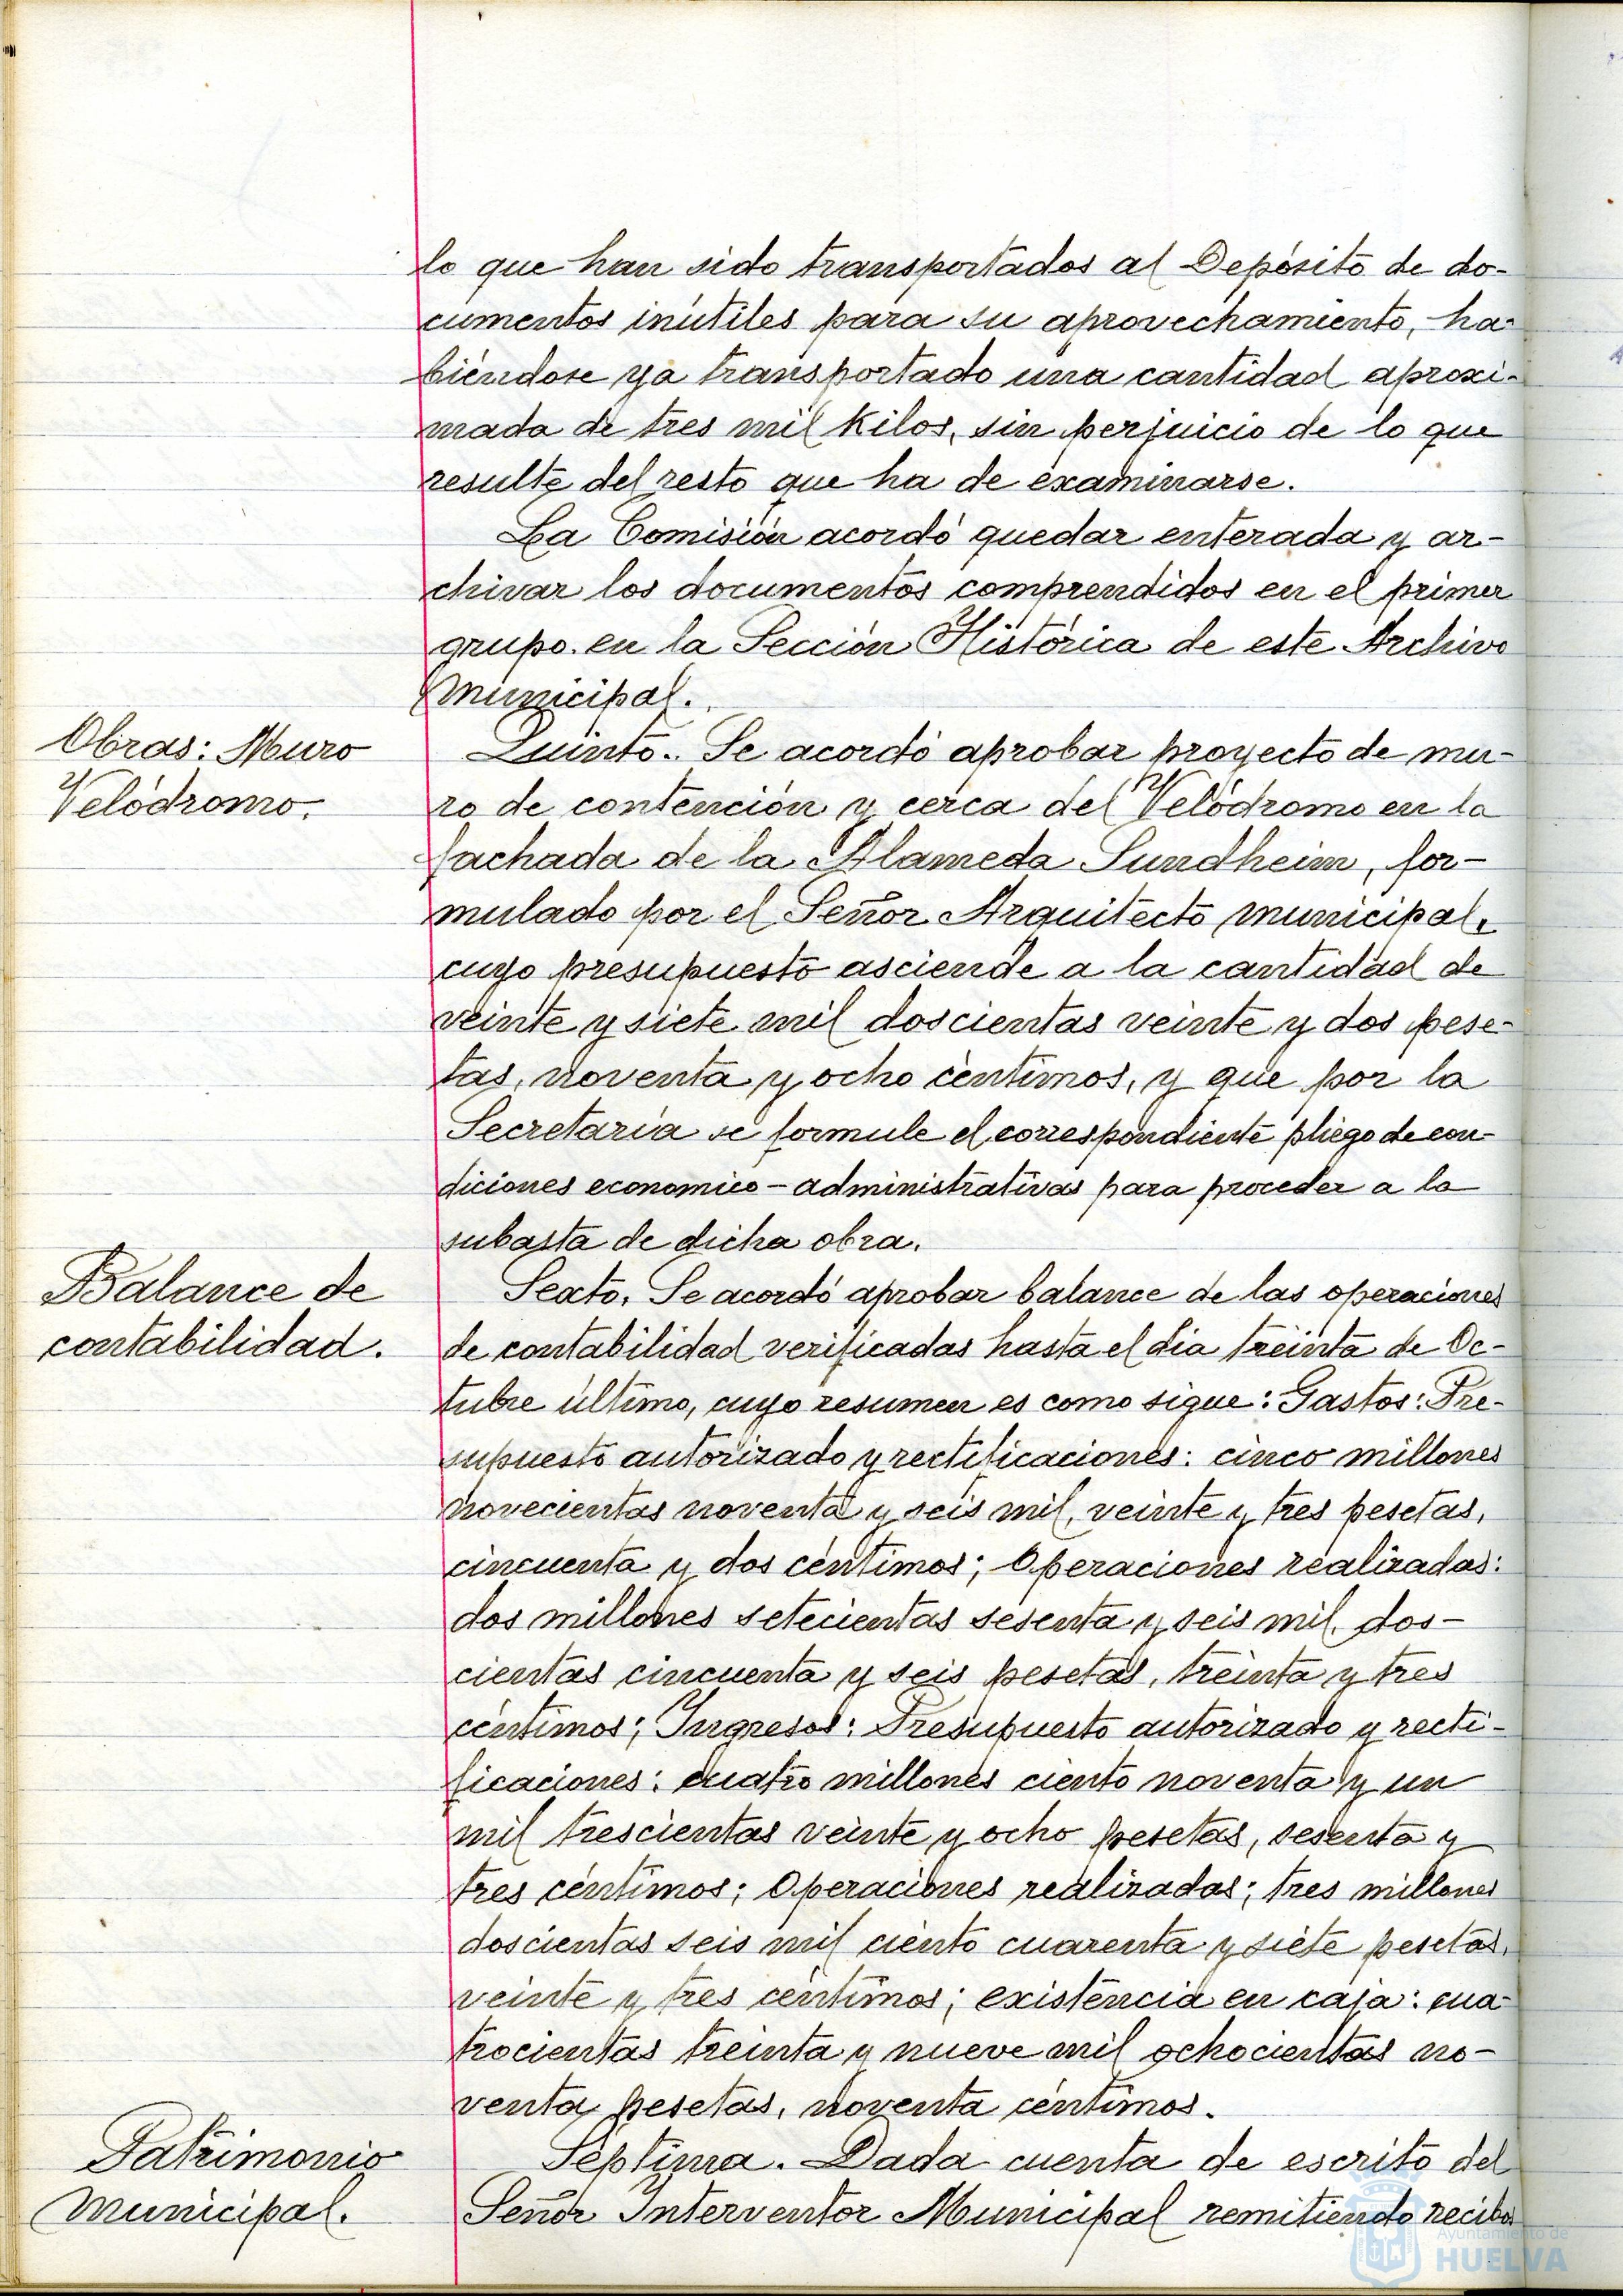 lo que han sido transportados al Depósito de do-
cumentos inútiles para su aprovechamiento, ha-
biéndose ya transportado una cantidad aproxi-
mada de tres mil kilos, sin perjuicio de lo que
resulte del resto que ha de examinarse.
La Comisión acordó quedar enterada y ar-
chivar los documentos comprendidos en el primer
grupo en la Sección Histórica de este Archivo
Municipal.
Obras: Muro
Velódromo.
Quinto.. Se acordó aprobar proyecto de mu-
ro de contención y cerca del Velódromo en la
fachada de la Alameda Sundheim, for-
mulado por el Señor Arquitecto municipal,
cuyo presupuesto asciende a la cantidad de
veinte y siete mil doscientas veinte y dos pese-
tas, noventa y ocho céntimos, y que por la
Secretaría se formule el correspondiente pliego de con-
diciones economico-administrativas para proceder a la
subasta de dicha obra.
Balance de
contabilidad.
Sexto. Se acordó aprobar balance de las operaciones
de contabilidad verificadas hasta el día treinta de Oc-
tubre último, cuyo resumen es como sigue: Gastos: Pre-
supuesto autorizado y rectificaciones: cinco millones
novecientas noventa y seis mil, veinte y tres pesetas,
cincuenta y dos céntimos; Operaciones realizadas:
dos millones setecientas sesenta y seis mil, dos-
cientas cincuenta y seis pesetas, treinta y tres
céntimos; Ingresos: Presupuesto autorizado y recti-
ficaciones: cuatro millones ciento noventa y un
mil trescientas veinte y ocho pesetas, sesenta y
tres céntimos; Operaciones realizadas; tres millones
doscientas seis mil ciento cuarenta y siete pesetas,
veinte y tres céntimos; existencia en caja: cua-
trocientas treinta y nueve mil ochocientas no-
venta pesetas, noventa céntimos.
Patrimonio
Municipal.
Séptima. Dada cuenta de escrito del
Señor Interventor Municipal remitiendo recibo
Ayuntamiento de
HUELVA